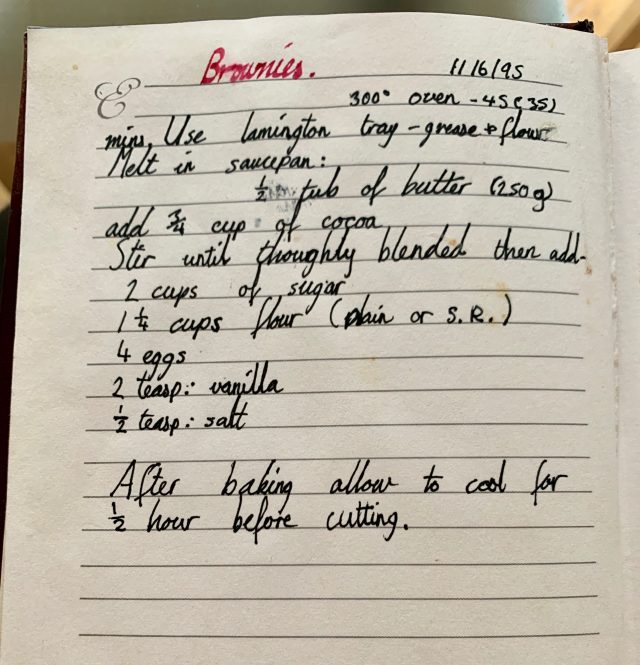 Brownies.
11/6/95
300° oven - 45 (35)
mins. Use lamington tray - grease + flour
Melt in saucepan:
½ tub of butter (250g)
add ¾ cup of cocoa
Stir until thoughly blended then add-
2 cups of sugar
1 ¼ cups flour (plain or S.R.)
4 eggs
2 teasp: vanilla
½ teasp: salt
After baking allow to cool for
½ hour before cutting.